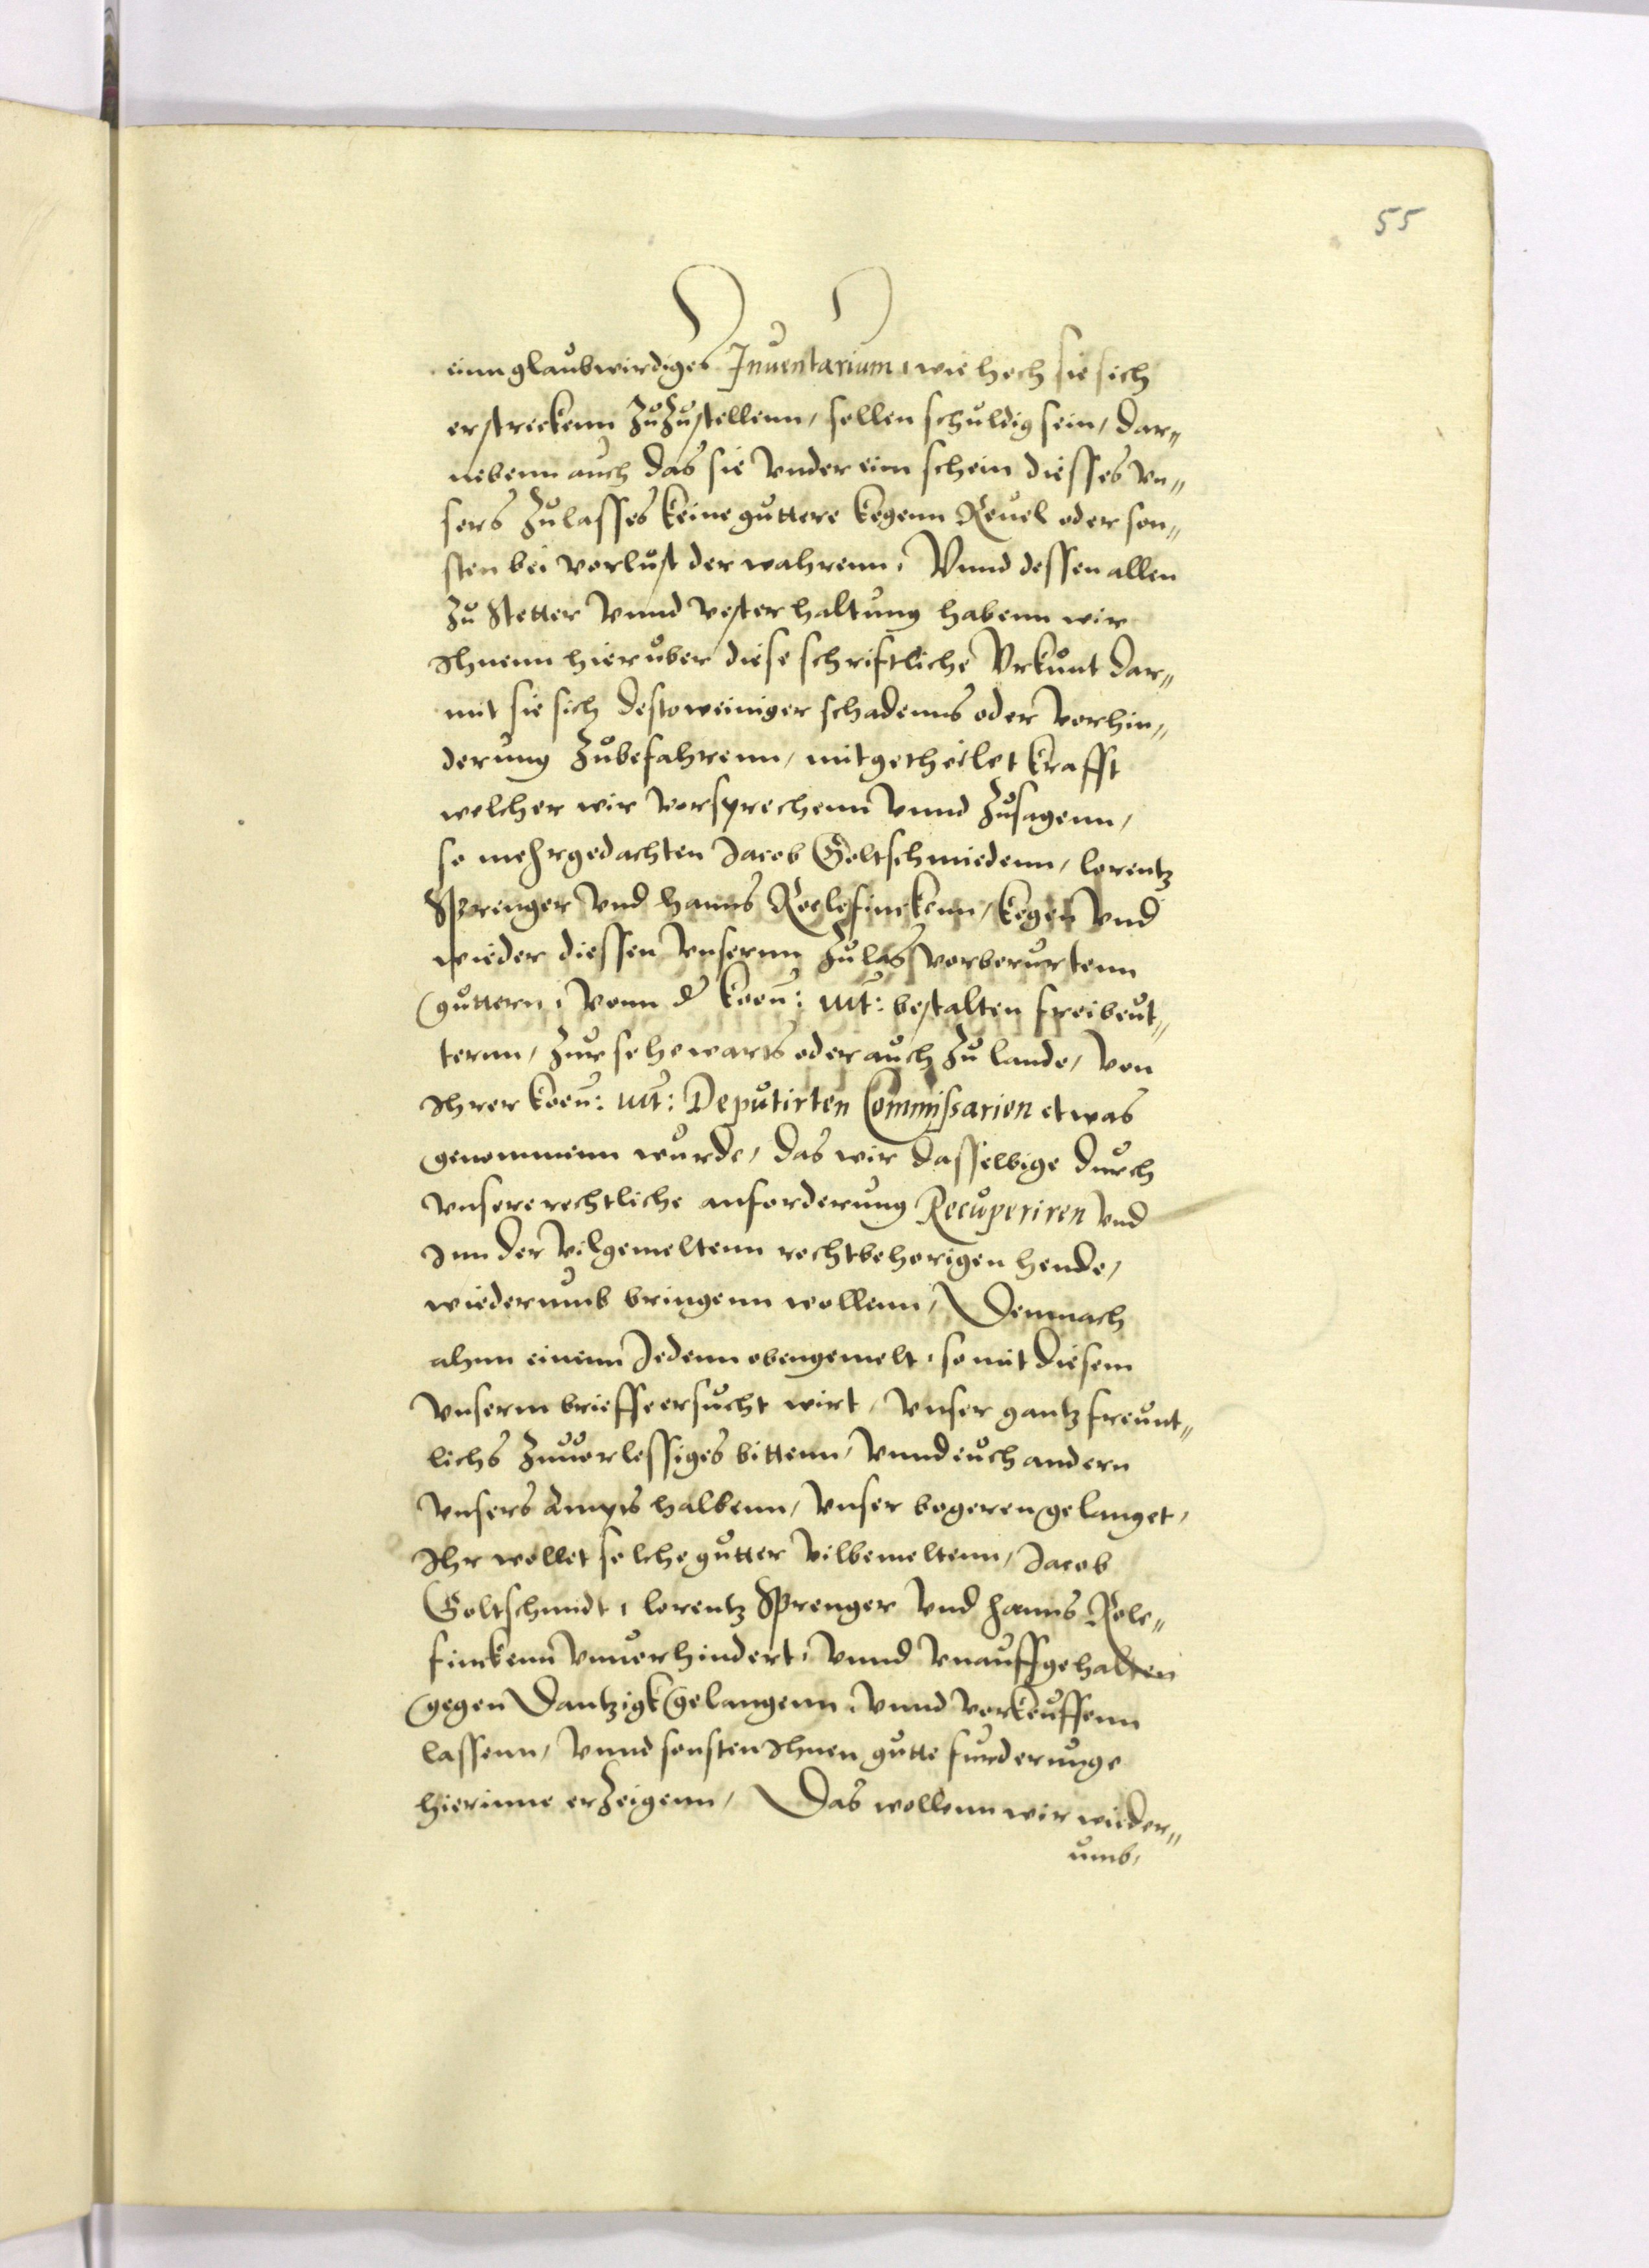 55
einn glaubwirdiges Inuentarium, wie hoch sie sich
erstreckenn Zuzustellenn, sollen schuldig sein, dar„
nebenn auch das sie vnder eim schein diesses vn„
sers Zulasses keine guttere kegenn Reuel oder son„
sten bei vorlust der wahrenn, Vnnd dessen allen
Zu stetter vnnd vester haltung habenn wir
Ihnenn hieruber diese schriftliche Vrkunt dar„
mit sie sich destoweiniger schadenns oder vorhin„
derung Zubefahrenn, mitgetheilet krafft
welcher wir vorsprechenn vnnd Zusagenn,
so mehrgedachten Jacob Goltschmiedenn, lorentz
Sprenger vnd hanns Rolefinckenn, kegen vnd
wieder diessen vnserm Zulas vorberurtenn
guttern, vonn d koen: mt: bestalten freibeut„
ternn, Zur sehewarts oder auch Zu lande, von
Ihrer koen: mt: Deputirten Commissarien etwas
genommenn wurde, das wir dasselbige durch
vnsere rechtliche anforderung Recuperiren vnd
Inn der vilgemeltenn rechtbehorigen hende,
wiederumb bringenn wollenn, Demnach
ahnn einenn Jedenn obengemelt, so mit diesem
vnserm brieffe ersucht wirt, vnser gantz freunt„
lichs Zuuorlessiges bittenn, vnnd euch andern
vnsers Ampts halbenn, vnser begeren gelanget,
Ihr wollet solche gutter vilbemeltenn, Jacob
Goltschmidt, lorentz Sprenger vnd hanns Role„
finckenn vnuorhindert, vnnd vnauffgehalten
gegen Dantzigk gelangenn, vnnd vorkeuffenn
lassenn, vnnd sonsten Ihnen gutte furderunge
hierinne erzeigenn, Das wollenn wir wieder„
umb,